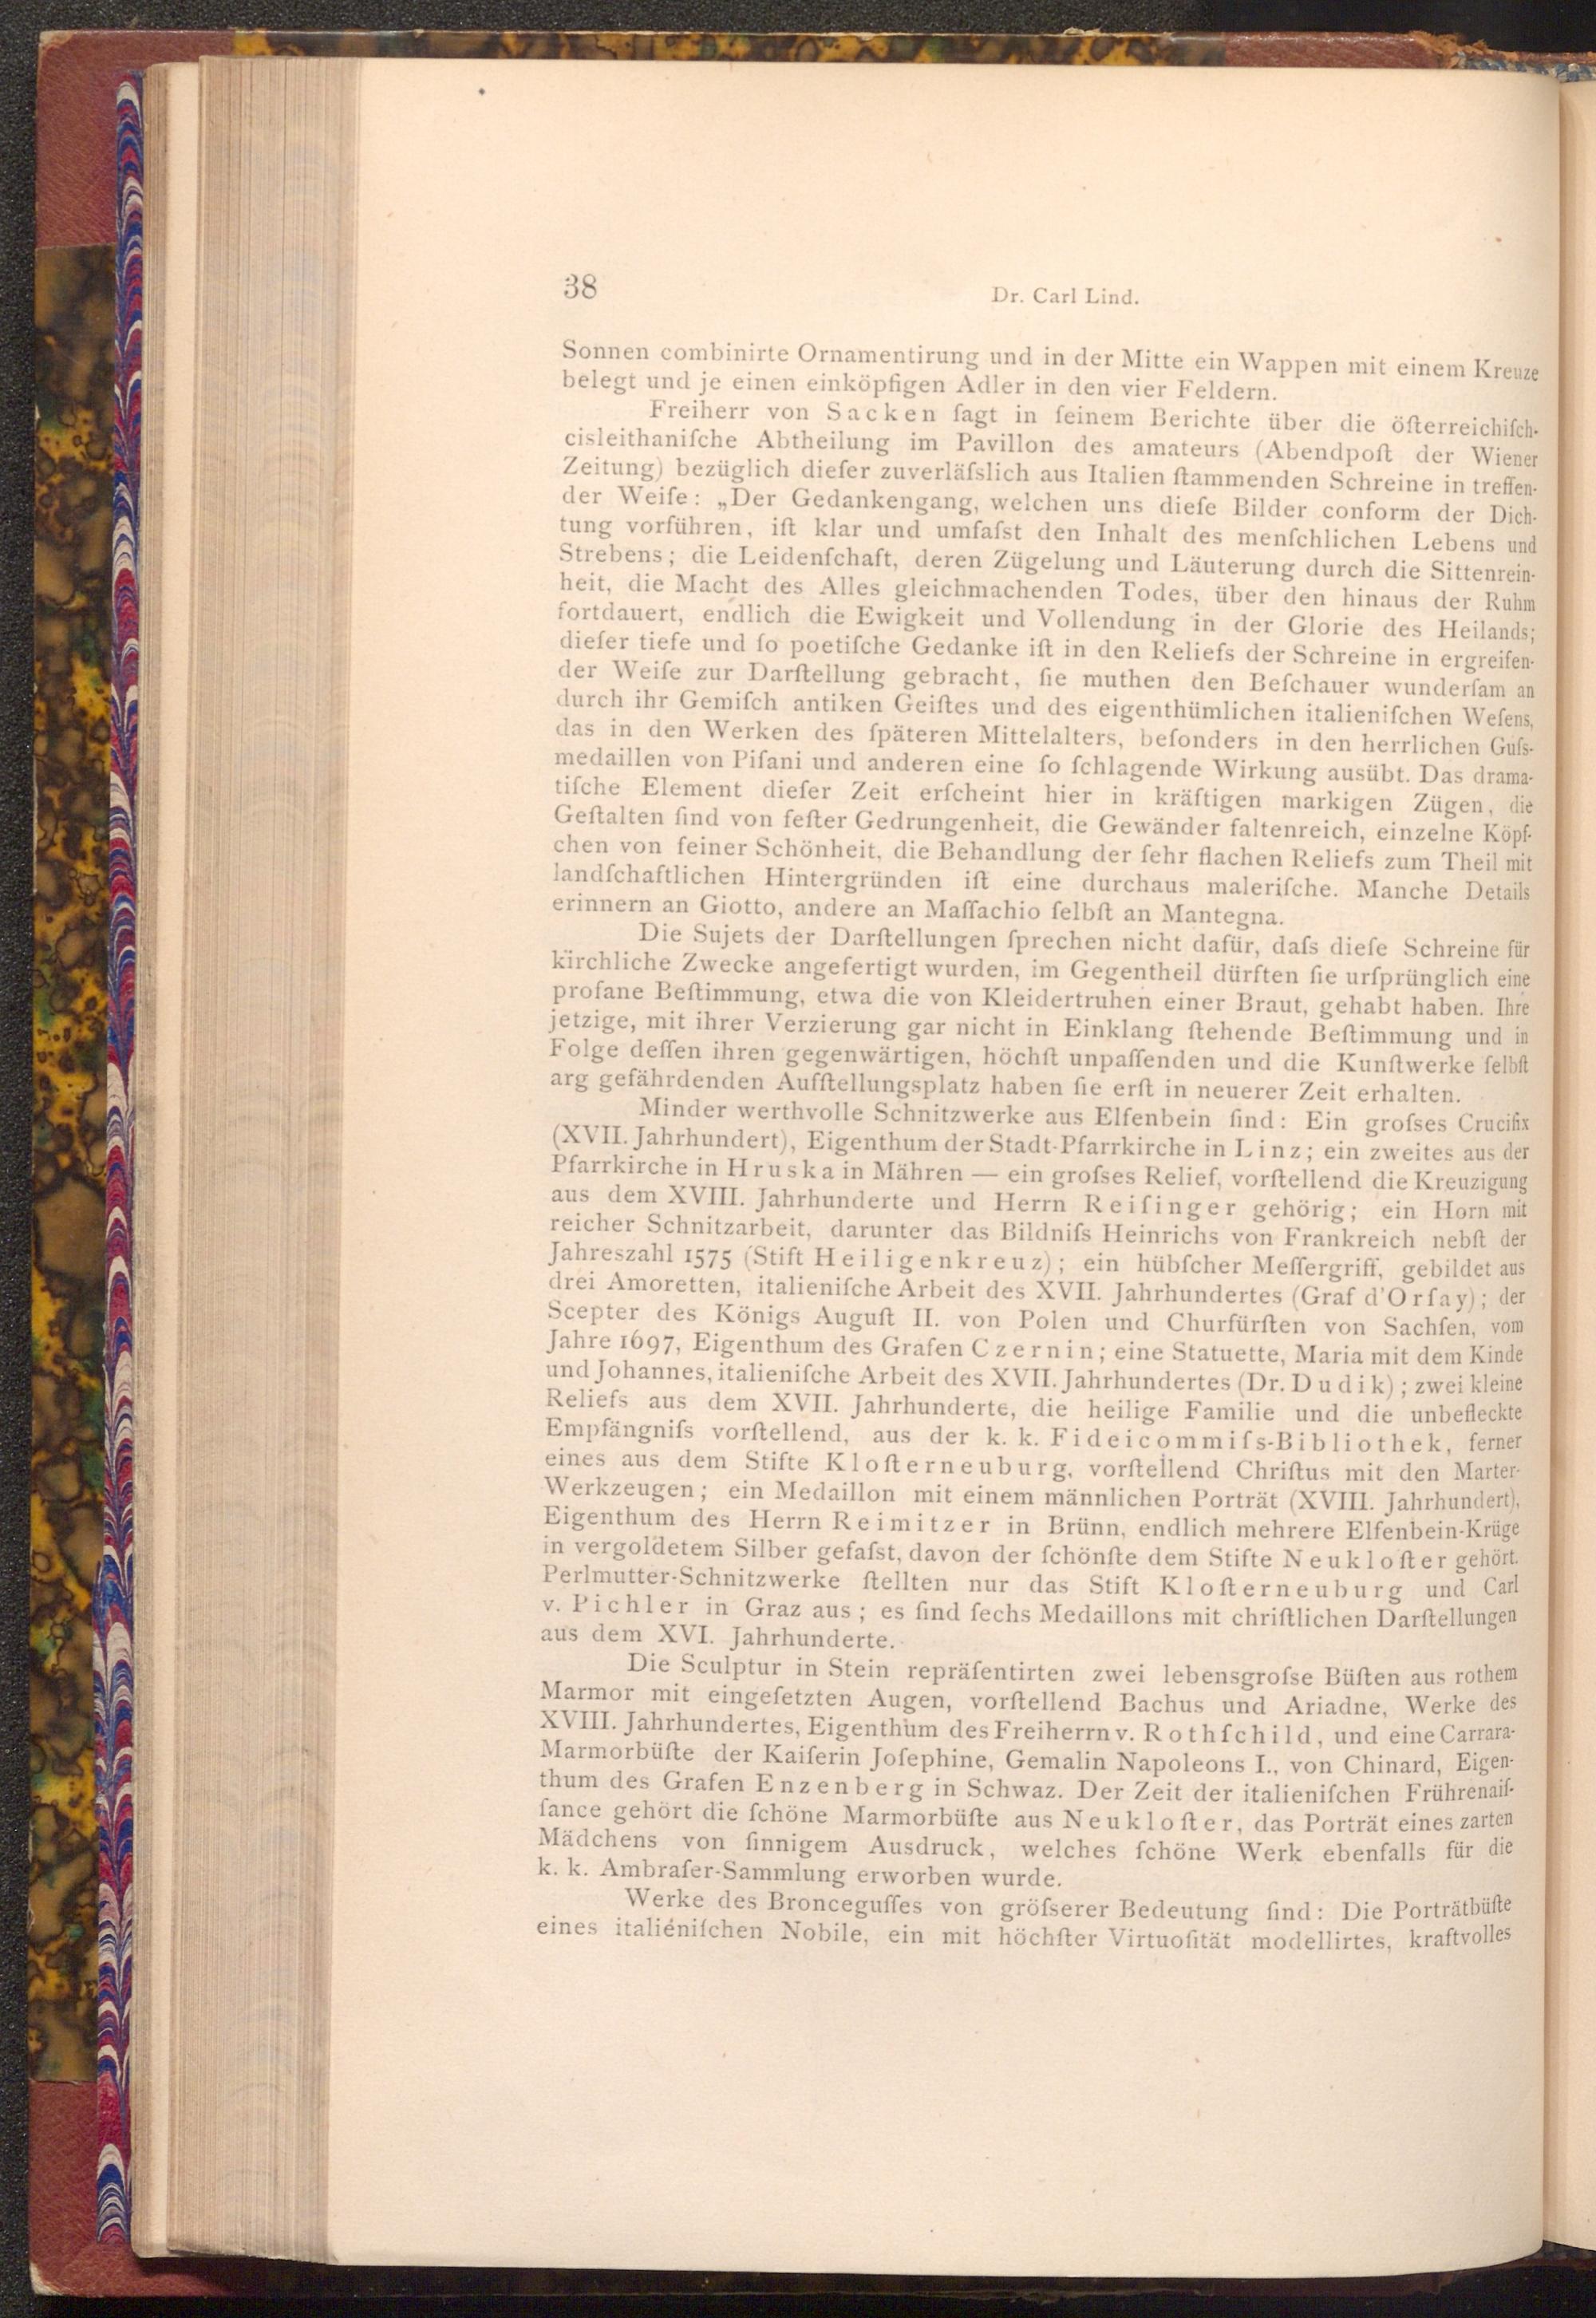 38
Dr. Carl Lind.
Sonnen combinirte Ornamentirung und in der Mitte ein Wappen mit einem Kreuze
belegt und je einen einköpfigen Adler in den vier Feldern.
Freiherr von Sacken ſagt in ſeinem Berichte über die öſterreichiſch-
cisleithaniſche Abtheilung im Pavillon des amateurs (Abendpoſt der Wiener
Zeitung) bezüglich dieſer zuverläſslich aus Italien ſtammenden Schreine in treffen-
der Weiſe: „Der Gedankengang, welchen uns dieſe Bilder conform der Dich-
tung vorführen, iſt klar und umfaſst den Inhalt des menſchlichen Lebens und
Strebens; die Leidenſchaft, deren Zügelung und Läuterung durch die Sittenrein-
heit, die Macht des Alles gleichmachenden Todes, über den hinaus der Ruhm
fortdauert, endlich die Ewigkeit und Vollendung in der Glorie des Heilands;
dieſer tiefe und ſo poetiſche Gedanke iſt in den Reliefs der Schreine in ergreifen-
der Weiſe zur Darſtellung gebracht, ſie muthen den Beſchauer wunderſam an
durch ihr Gemiſch antiken Geiſtes und des eigenthümlichen italieniſchen Weſens,
das in den Werken des ſpäteren Mittelalters, beſonders in den herrlichen Guſs-
medaillen von Piſani und anderen eine ſo ſchlagende Wirkung ausübt. Das drama-
tiſche Element dieſer Zeit erſcheint hier in kräftigen markigen Zügen, die
Geſtalten ſind von feſter Gedrungenheit, die Gewänder faltenreich, einzelne Köpf-
chen von feiner Schönheit, die Behandlung der ſehr flachen Reliefs zum Theil mit
landſchaftlichen Hintergründen iſt eine durchaus maleriſche. Manche Details
erinnern an Giotto, andere an Maſſachio ſelbſt an Mantegna.
Die Sujets der Darſtellungen ſprechen nicht dafür, daſs dieſe Schreine für
kirchliche Zwecke angefertigt wurden, im Gegentheil dürften ſie urſprünglich eine
profane Beſtimmung, etwa die von Kleidertruhen einer Braut, gehabt haben. Ihre
jetzige, mit ihrer Verzierung gar nicht in Einklang ſtehende Beſtimmung und in
Folge deſſen ihren gegenwärtigen, höchſt unpaſſenden und die Kunſtwerke ſelbſt
arg gefährdenden Aufſtellungsplatz haben ſie erſt in neuerer Zeit erhalten.
Minder werthvolle Schnitzwerke aus Elfenbein ſind: Ein groſses Crucifix
(XVII. Jahrhundert), Eigenthum der Stadt-Pfarrkirche in Linz; ein zweites aus der
Pfarrkirche in Hruska in Mähren — ein groſses Relief, vorſtellend die Kreuzigung
aus dem XVIII. Jahrhunderte und Herrn Reiſinger gehörig; ein Horn mit
reicher Schnitzarbeit, darunter das Bildniſs Heinrichs von Frankreich nebſt der
Jahreszahl 1575 (Stift Heiligenkreuz); ein hübſcher Meſſergriff, gebildet aus
drei Amoretten, italieniſche Arbeit des XVII. Jahrhundertes (Graf d'Orſay); der
Scepter des Königs Auguſt II. von Polen und Churfürſten von Sachſen, vom
Jahre 1697, Eigenthum des Grafen Czernin; eine Statuette, Maria mit dem Kinde
und Johannes, italieniſche Arbeit des XVII. Jahrhundertes (Dr. Dudik); zwei kleine
Reliefs aus dem XVII. Jahrhunderte, die heilige Familie und die unbefleckte
Empfängniſs vorſtellend, aus der k. k. Fideicommiſs-Bibliothek, ferner
eines aus dem Stifte Kloſterneuburg, vorſtellend Chriſtus mit den Marter-
Werkzeugen; ein Medaillon mit einem männlichen Porträt (XVIII. Jahrhundert),
Eigenthum des Herrn Reimitzer in Brünn, endlich mehrere Elfenbein-Krüge
in vergoldetem Silber gefaſst, davon der ſchönſte dem Stifte Neukloſter gehört.
Perlmutter-Schnitzwerke ſtellten nur das Stift Kloſterneuburg und Carl
v. Pichler in Graz aus; es ſind ſechs Medaillons mit chriſtlichen Darſtellungen
aus dem XVI. Jahrhunderte.
Die Sculptur in Stein repräſentirten zwei lebensgroſse Büſten aus rothem
Marmor mit eingeſetzten Augen, vorſtellend Bachus und Ariadne, Werke des
XVIII. Jahrhundertes, Eigenthum des Freiherrn v. Rothſchild, und eine Carrara-
Marmorbüſte der Kaiſerin Joſephine, Gemalin Napoleons I., von Chinard, Eigen-
thum des Grafen Enzenberg in Schwaz. Der Zeit der italieniſchen Frührenaiſ-
ſance gehört die ſchöne Marmorbüſte aus Neukloſter, das Porträt eines zarten
Mädchens von ſinnigem Ausdruck, welches ſchöne Werk ebenfalls für die
k. k. Ambraſer-Sammlung erworben wurde.
Werke des Bronceguſſes von gröſserer Bedeutung ſind: Die Porträtbüſte
eines italiéniſchen Nobile, ein mit höchſter Virtuoſität modellirtes, kraftvolles